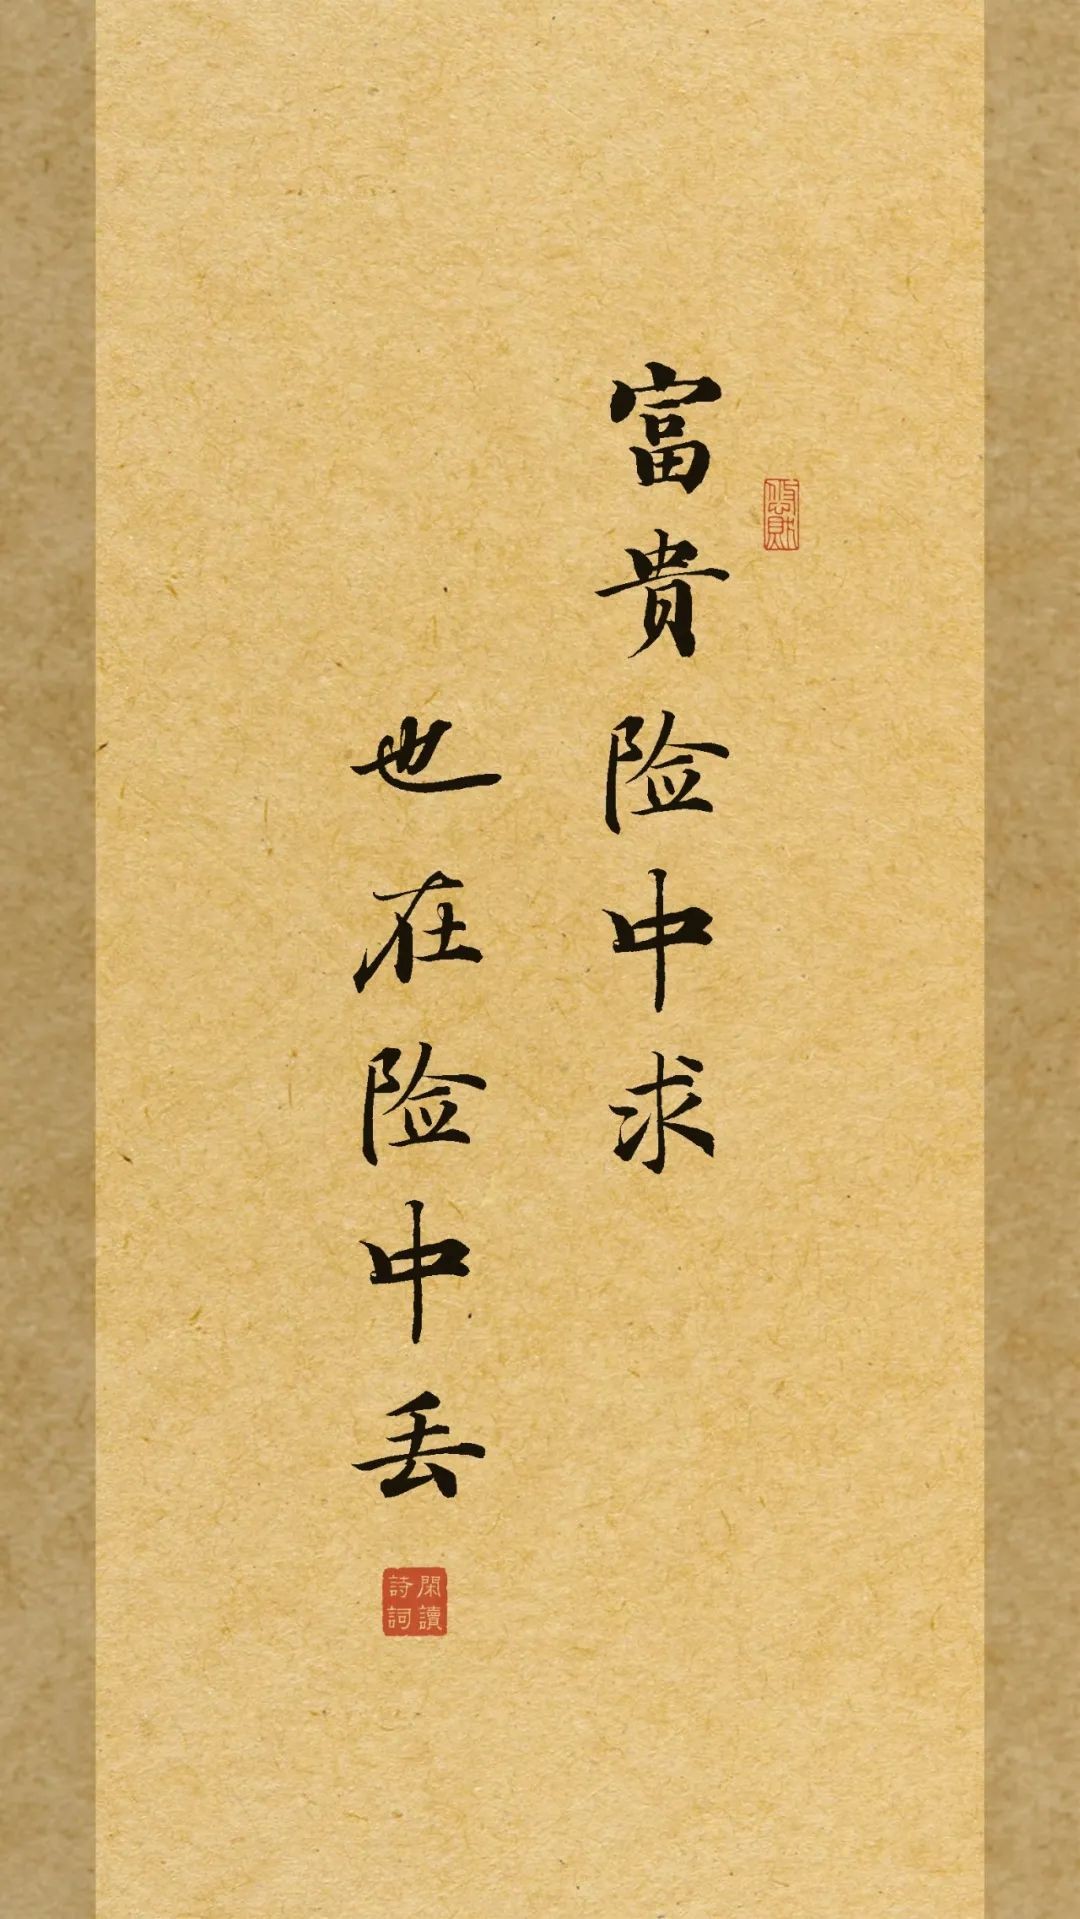 富貴险中求
也在险中丢
閑讀
詩詞